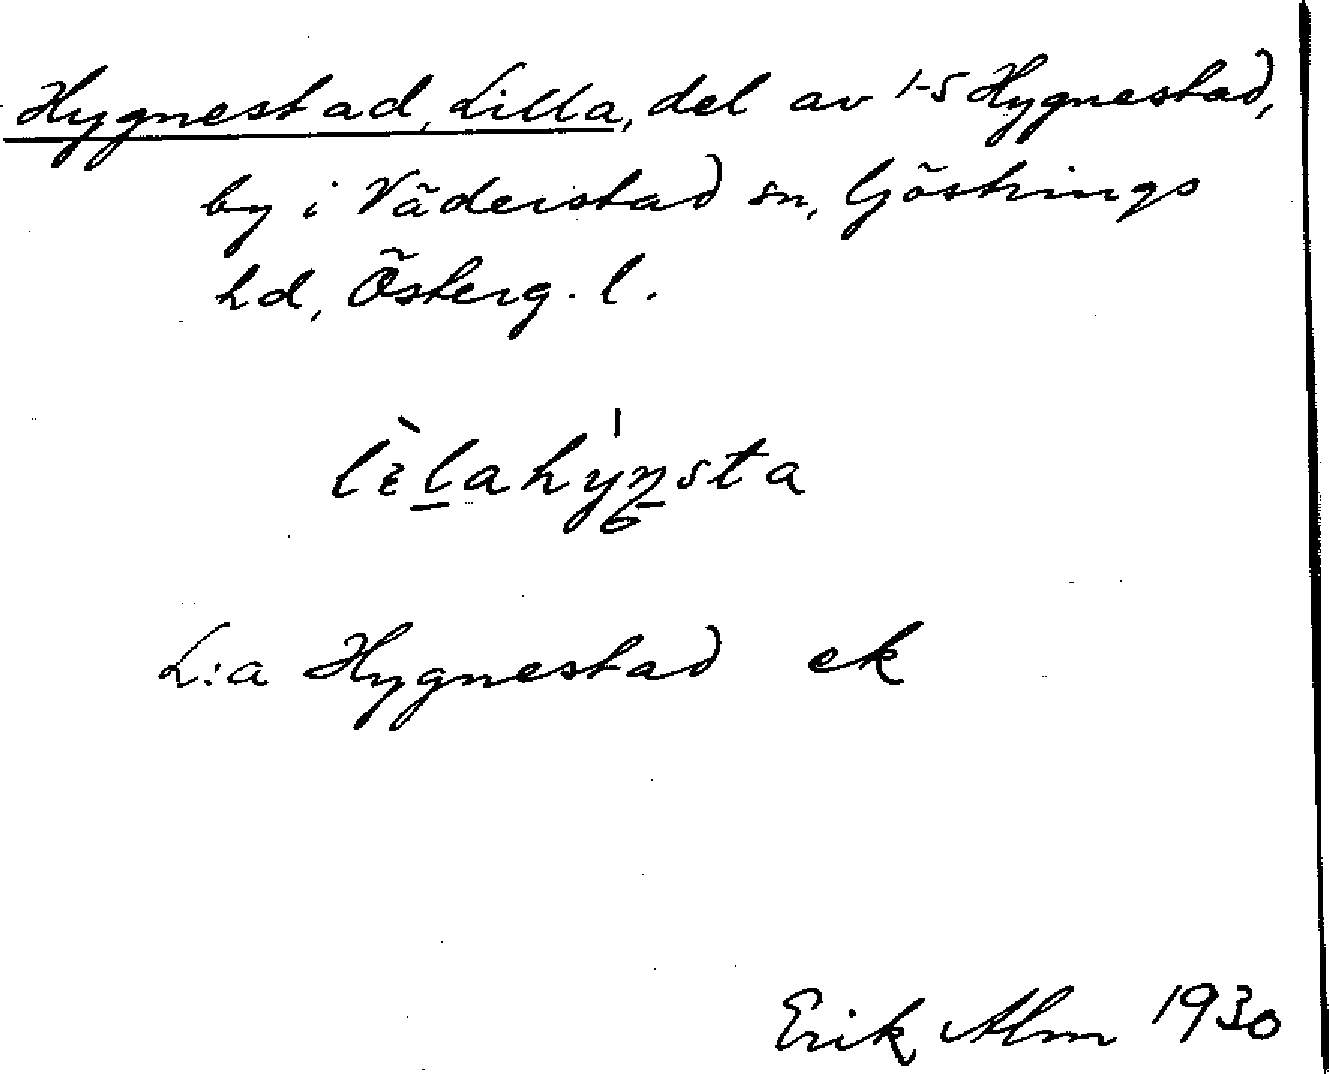 Hygnestad, Lilla, del av 1-5 Hygnestad,
by i Väderstad sn, Göstrings
hd, Österg. l.
lὲlahýnsta
L:a Hygnestad ek
Erik Alm 1930